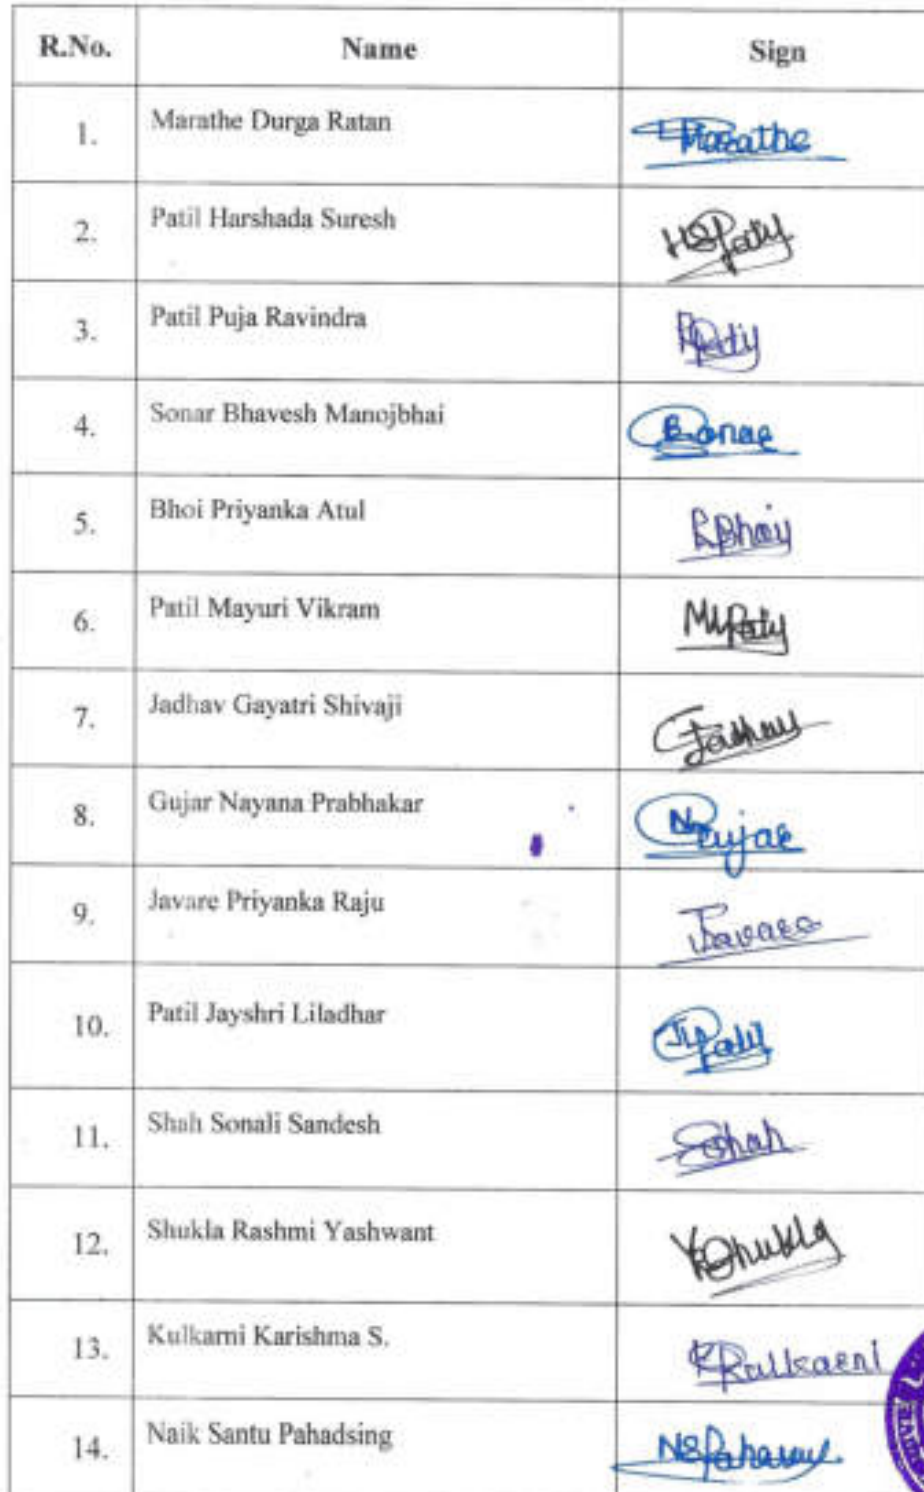 R.No. Name Sign
1. Marathe Durga Ratan Marathe
2. Patil Harshada Suresh HSPatil
3. Patil Puja Ravindra PPatil
4. Sonar Bhavesh Manojbhai BSonar
5. Bhoi Priyanka Atul PBhoi
6. Patil Mayuri Vikram MVPatil
7. Jadhav Gayatri Shivaji Jadhav
8. Gujar Nayana Prabhakar NGujar
9. Javare Priyanka Raju Javare
10. Patil Jayshri Liladhar JLPatil
11. Shah Sonali Sandesh Shah
12. Shukla Rashmi Yashwant Shukla
13. Kulkarni Karishma S. Kulkarni
14. Naik Santu Pahadsing